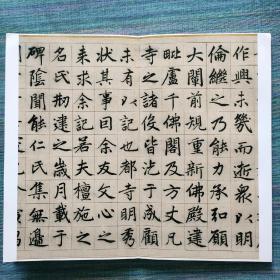 作興未幾而逝衆以明
倫繼之乃能力承和願
大闡前規重新佛殿建
毗盧千佛閣及方丈凡
寺之諸役皆沾于成顧
未有以記也都寺明秀
狀其事因余友文心之
来求余記若夫檀施之
名氏剏建之歲月載于
碑陰聞能仁氏集無邊